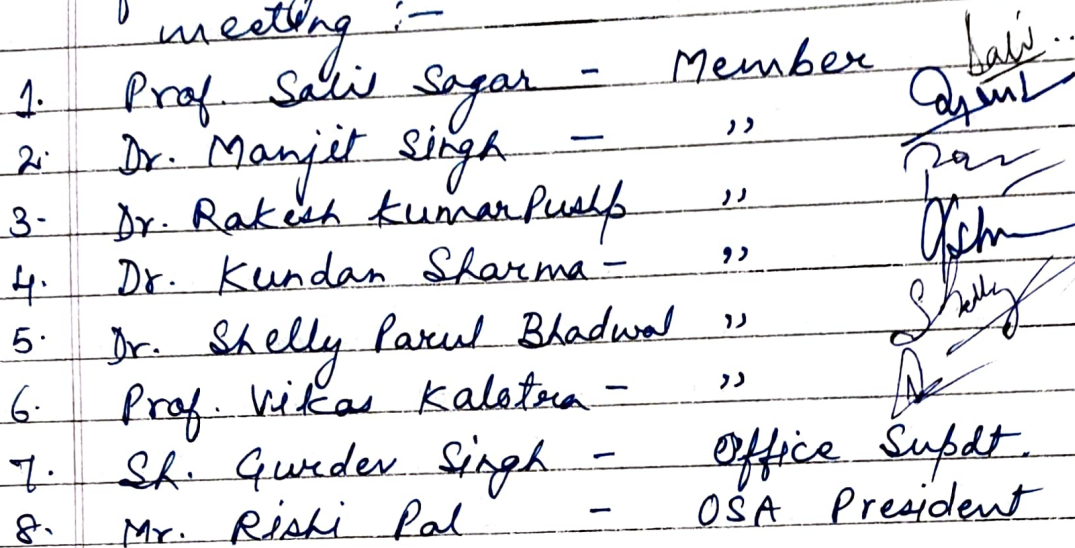 meeting :-
1. Prof. Salil Sagar - Member
2. Dr. Manjit Singh - "
3- Dr. Rakesh Kumar Pushp "
4. Dr. Kundan Sharma - "
5. Dr. Shelly Parul Bhadwal " Shelly
6. Prof. Vikas Kalotra - "
7. Sh. Gurdev Singh - Office Supdt.
8. Mr. Rishi Pal - OSA President